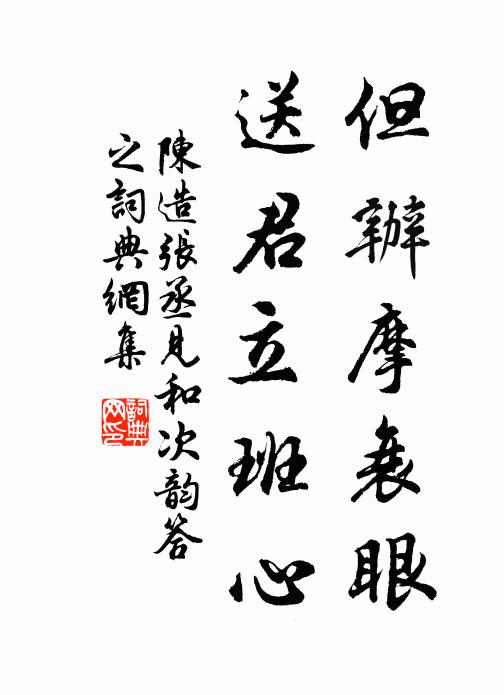 但辦摩衰眼
送君立班心
陳造張丞見和次韵答
之詞典網集
詞典网印